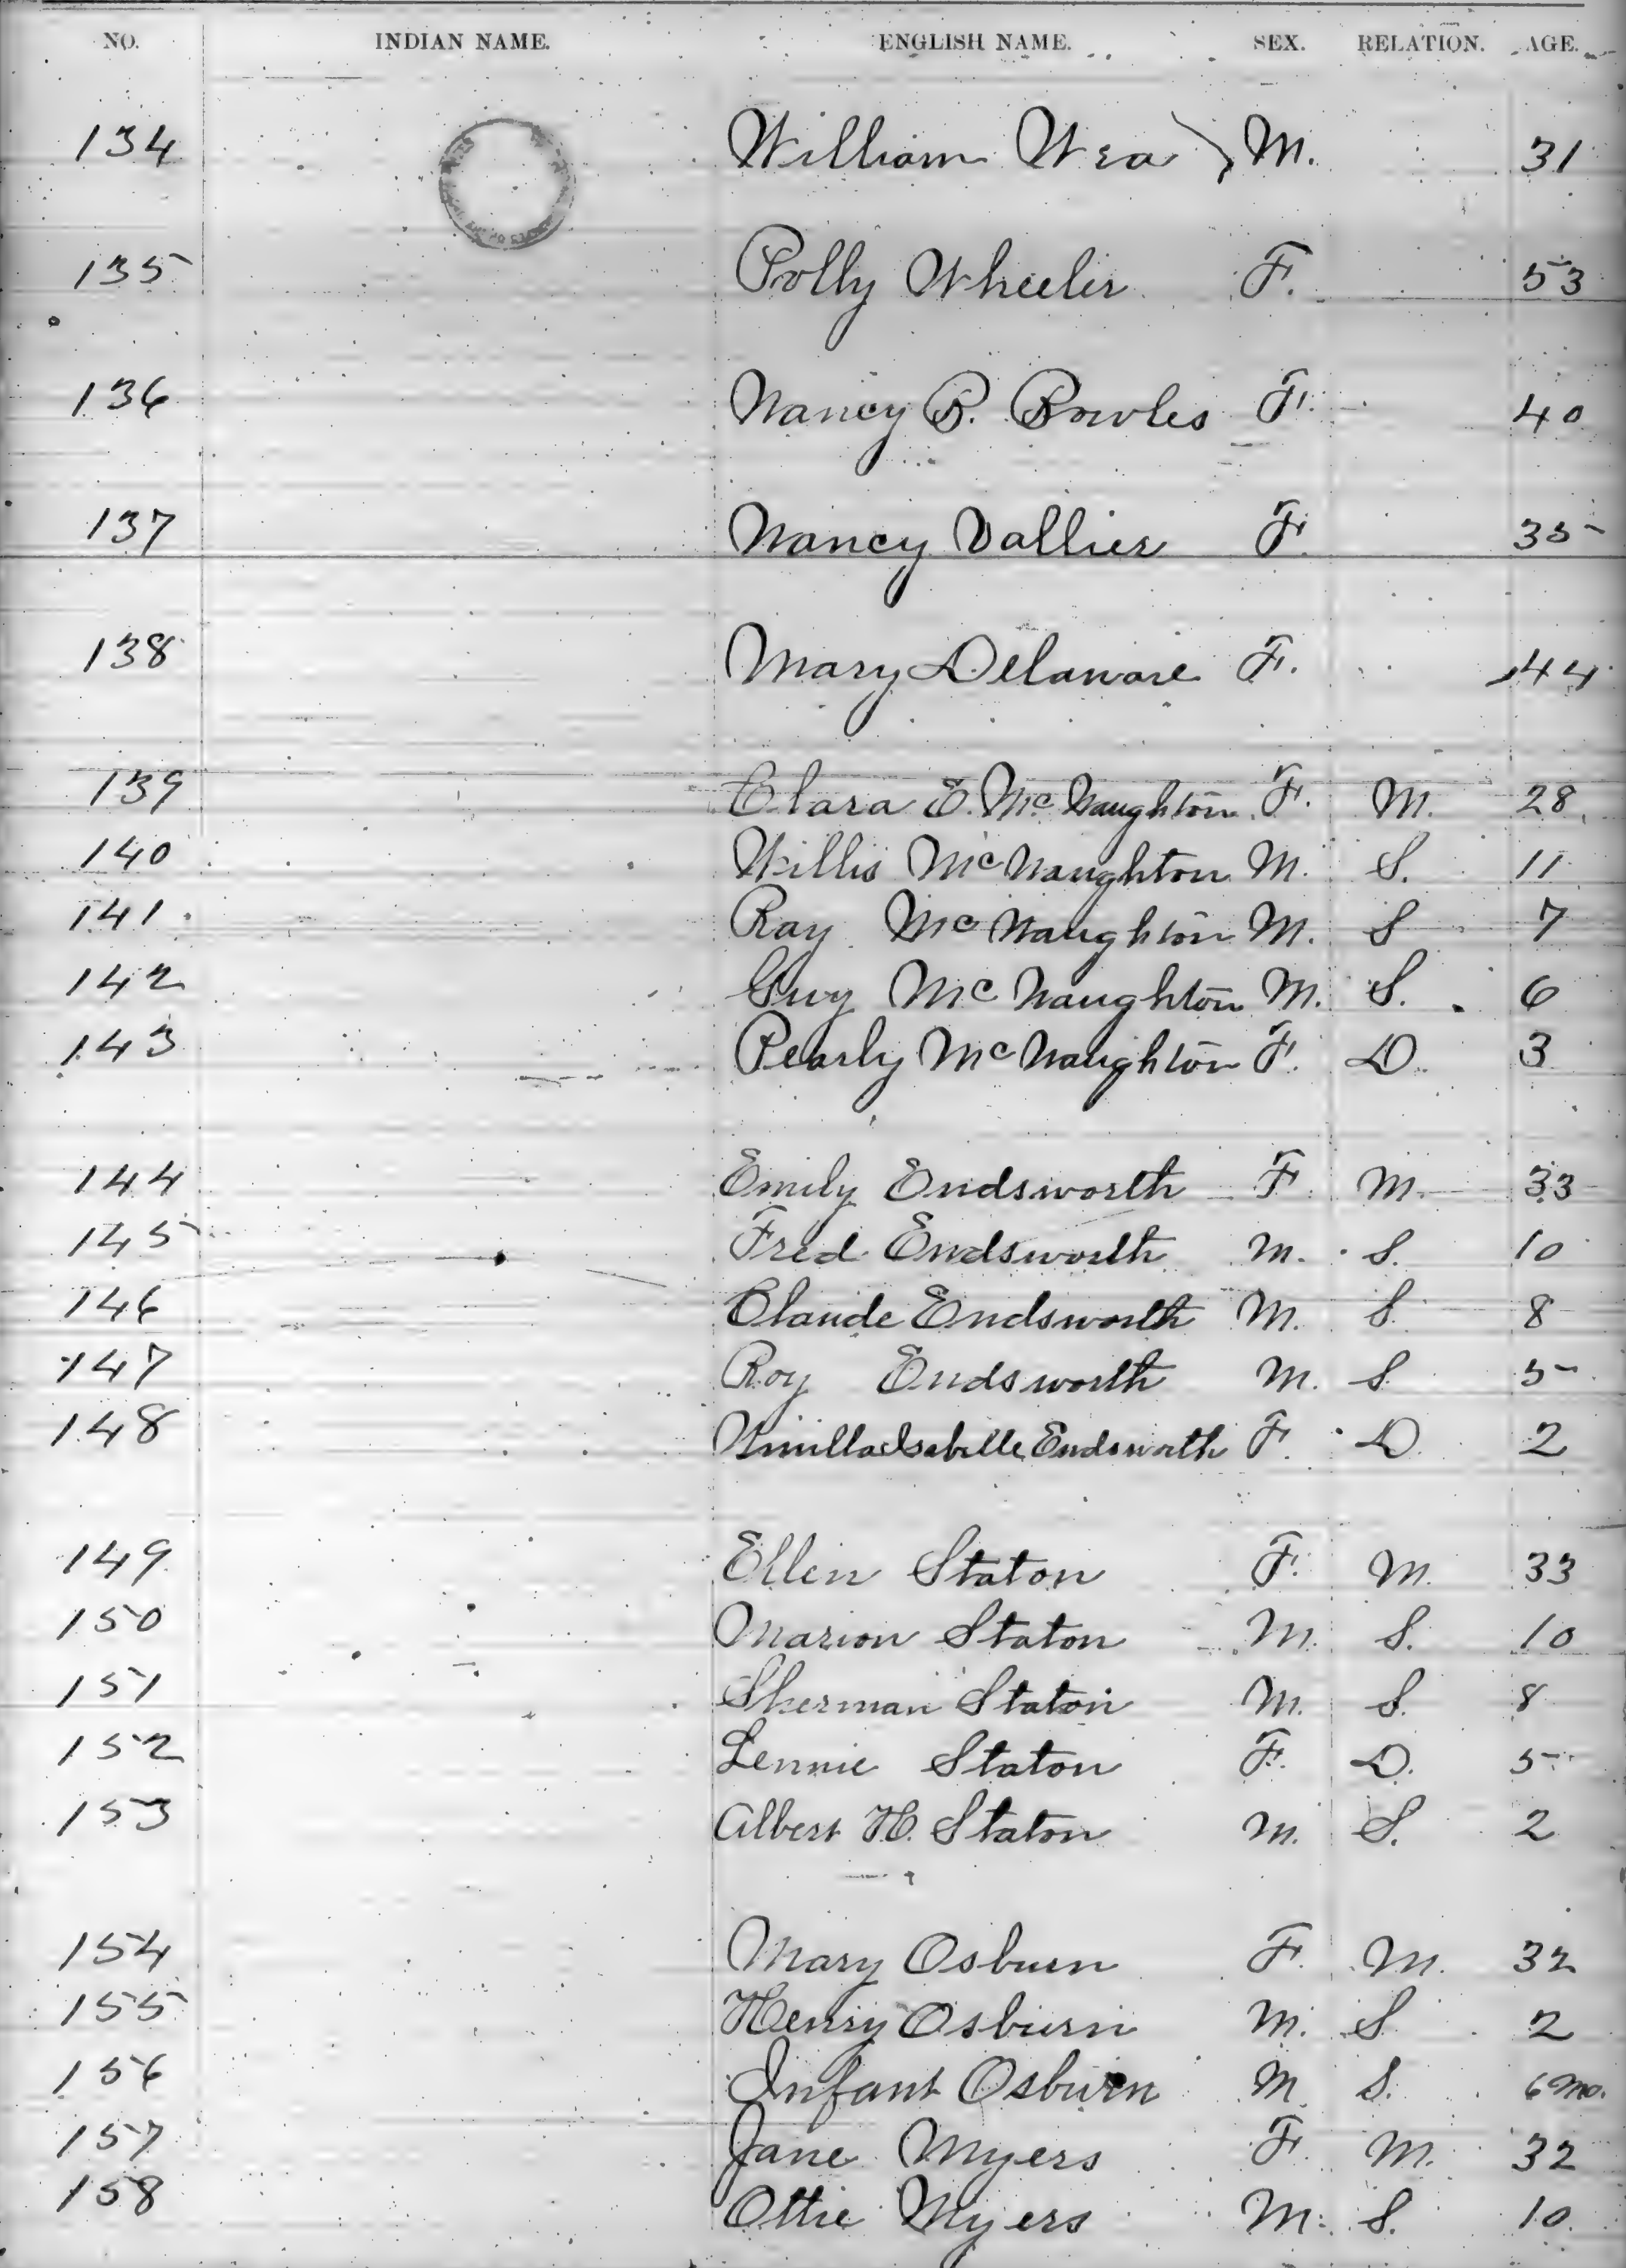 NO. INDIAN NAME. ENGLISH NAME. SEX. RELATION. AGE.
134 William Wea M. 31
135 Polly Wheeler F. 53
136 Nancy B. Bowles F. 40
137 Nancy Vallier F. 35
138 Mary Delaware F. 44
139 Clara E. McNaughton F. M. 28
140 Willis McNaughton M. S. 11
141 Ray McNaughton M. S 7
142 Guy McNaughton M. S. 6
143 Pearly McNaughton F. D. 3
144 Emily Endsworth F. M. 33
145 Fred Endsworth M. S. 10
146 Claude Endsworth M. S. 8
147 Roy Endsworth M. S 5
148 Isabelle Endsworth F. D. 2
149 Ellen Staton F. M. 33
150 Marion Staton M. S. 10
151 Sherman Staton M. S. 8
152 Lennie Staton F. D. 5
153 Albert H. Staton M. S. 2
154 Mary Osburn F. M. 32
155 Henry Osburn M. S 2
156 Infant Osburn M. S. 6 mo.
157 Jane Myers F. M. 32
158 Ottie Myers M. S. 10